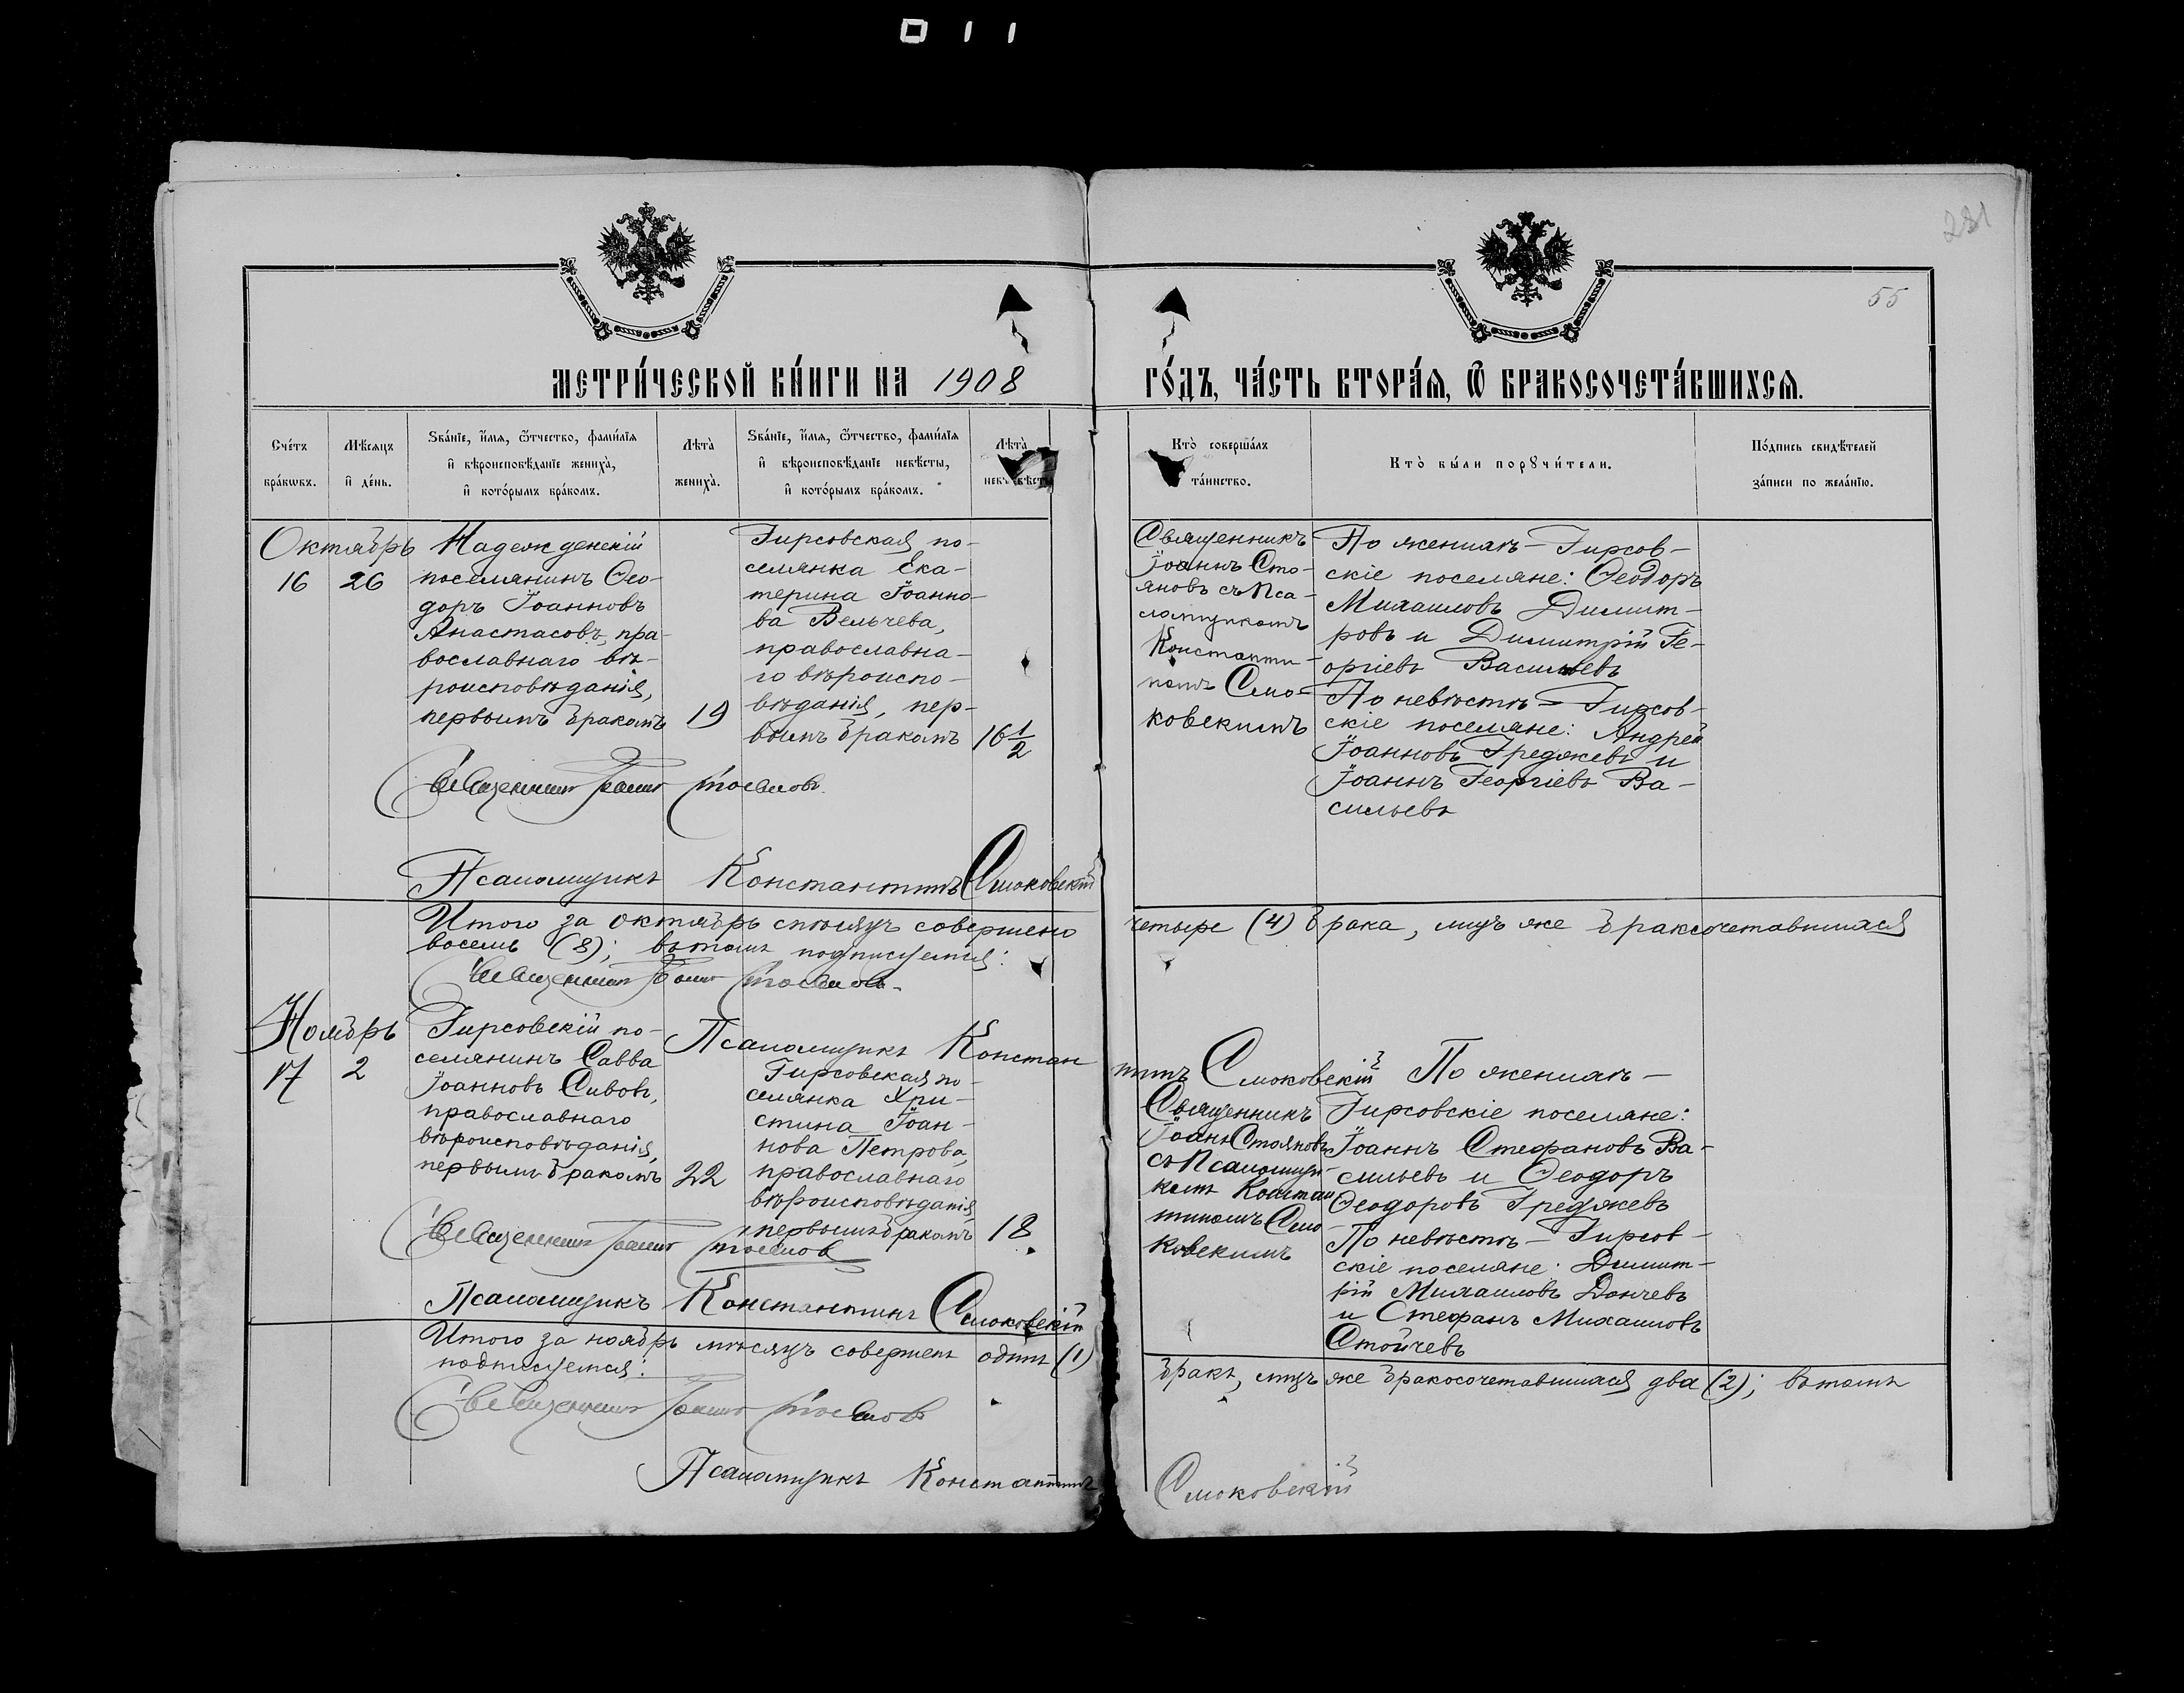 011
281
55
МЕТРИ́ЧЕСКОЙ КНИ́ГИ НА 1908
ГО́ДЪ, ЧА́СТЬ ВТОРА́Я, Ѿ БРАКОСОЧЕТА́ВШИХСЯ.
Сче́тъ
бра́кѡвъ.
Мѣ́сяцъ
и҆ де́нь.
Ѕва́нїе, и҆́мя, ѻ҆́тчество, фами́лїя
и҆ вѣроисповѣ́данїе жениха̀,
и҆ кото́рымъ бра́комъ.
Лѣта̀
жениха̀.
Ѕва́нїе, и҆́мя, ѻ҆́тчество, фами́лїя
и҆ вѣроисповѣ́данїе невѣ́сты,
и҆ кото́рымъ бра́комъ.
Лѣта̀
невѣсты
Кто̀ соверша́лъ
та́инство.
Кто̀ бы́ли порꙋчи́тели.
По́дпись свидѣ́телей
за́писи по жела́нїю.
Октябрь
16
26
Надежденскій
поселянинъ Ѳео-
доръ Іоанновъ
Анастасовъ, пра-
вославнаго вѣ-
роисповѣданія,
первымъ бракомъ
19
Гирсовская по-
селянка Ека-
терина Іоанно-
ва Вельчева,
православна-
го вѣроиспо-
вѣданія, пер-
вымъ бракомъ
16 1/2
Священникъ
Іоаннъ Сто-
яновъ съ Пса-
ломщикомъ
Константи-
номъ Смо-
ковскимъ
По женихѣ – Гирсов-
скіе поселяне: Ѳеодоръ
Михаиловъ Димит-
ровъ и Димитрій Ге-
оргіевъ Васильевъ
По невѣстѣ – Гирсов-
скіе поселяне: Андрей
Іоанновъ Греджевъ и
Іоаннъ Георгіевъ Ва-
сильевъ
Священникъ Іоаннъ Стояновъ.
Псаломщикъ Константинъ Смоковскій
Итого за октябрь мѣсяцъ совершено четыре (4) брака, лицъ же браксочетавшихся
восемь (8); въ томъ подписуемся:
Священникъ Іоаннъ Стояновъ.
Псаломщикъ Константинъ Смоковскій
Ноябрь
17
2
Гирсовскій по-
селянинъ Савва
Іоанновъ Сивовъ,
православнаго
вѣроисповѣданія,
первымъ бракомъ
22
Гирсовская по-
селянка Хри-
стина Іоан-
нова Петрова,
православнаго
вѣроисповѣданія
первымъ бракомъ
18
Священникъ
Іоаннъ Стояновъ
съ Псаломщи-
комъ Констан
тиномъ Смо-
ковскимъ
По женихѣ –
Гирсовскіе поселяне:
Іоаннъ Стефановъ Ва-
сильевъ и Ѳеодоръ
Ѳеодоровъ Греджевъ
По невѣстѣ – Гирсов-
скіе поселяне: Димит-
рій Михаиловъ Дончевъ
и Стефанъ Михаиловъ
Стойчевъ
Священникъ Іоаннъ Стояновъ
Псаломщикъ Константинъ Смоковскій
Итого за ноябрь мѣсяцъ совершенъ одинъ (1) бракъ, лицъ же бракосочетавшихся два (2); въ томъ
подписуемся:
Священникъ Іоаннъ Стояновъ
Псаломщикъ Константинъ Смоковскій